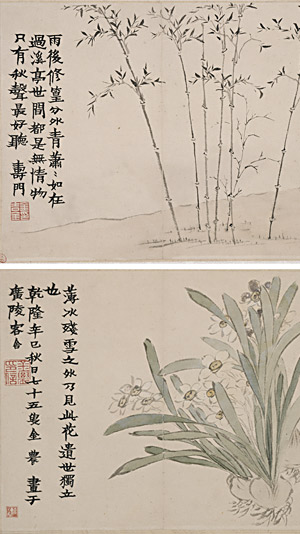 雨後修篁分外青蕭〻如在
過溪亭世間都是無情物
只有秋聲最好聽 壽門
薄冰殘雪之外乃見此花遺世獨立
也
乾隆辛巳秋日七十五叟金農畫于
廣陵客舍